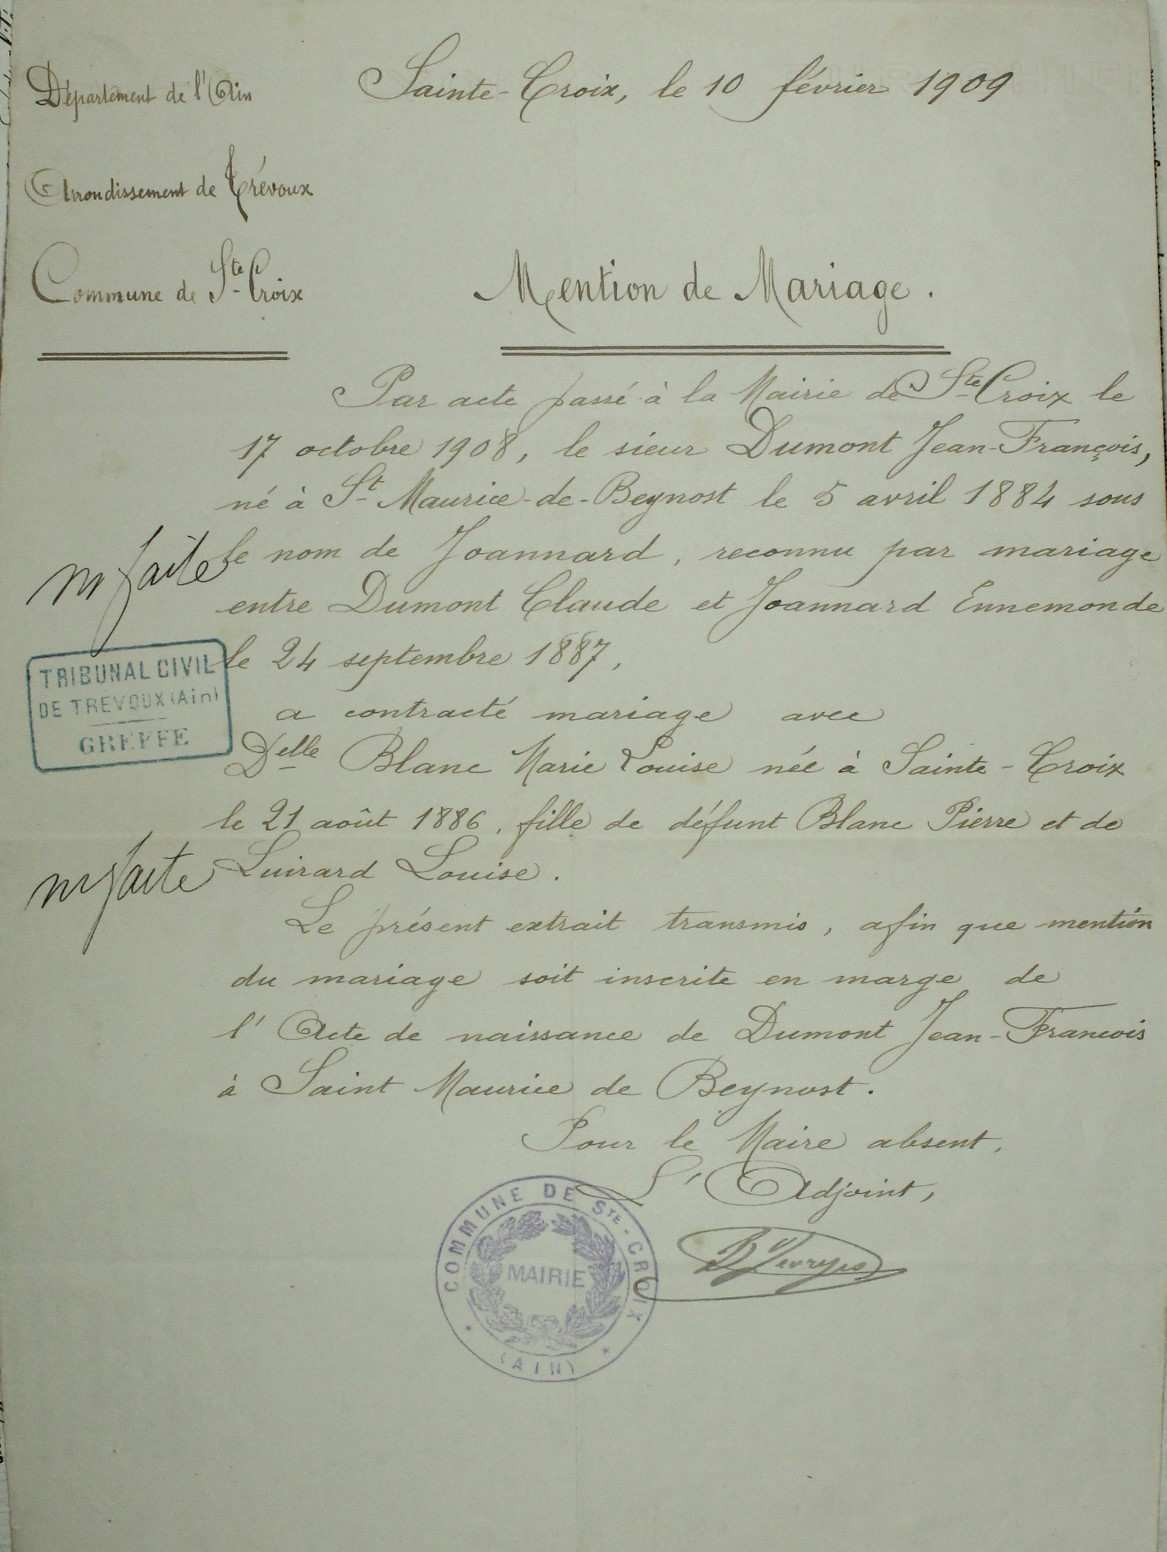 Département de l'Ain
Sainte-Croix, le 10 février 1909
Arrondissement de Trévoux
Commune de Ste Croix
Mention de Mariage.
Par acte passé à la Mairie de Ste Croix le
17 octobre 1908, le sieur Dumont Jean-François,
né à St Maurice-de-Beynost le 5 avril 1884 sous
le nom de Joannard, reconnu par mariage
entre Dumont Claude et Joannard Ennemonde
le 24 septembre 1887,
a contracté mariage avec
Delle Blanc Marie Louise née à Sainte-Croix
le 21 août 1886, fille de défunt Blanc Pierre et de
Luirard Louise.
Le présent extrait transmis, afin que mention
du mariage soit inscrite en marge de
l'Acte de naissance de Dumont Jean-Francois
à Saint Maurice de Beynost.
Pour le Maire absent,
L'Adjoint,
faite
TRIBUNAL CIVIL
DE TREVOUX (Ain)
GREFFE
faite
COMMUNE DE STE-CROIX
MAIRIE
(AIN)